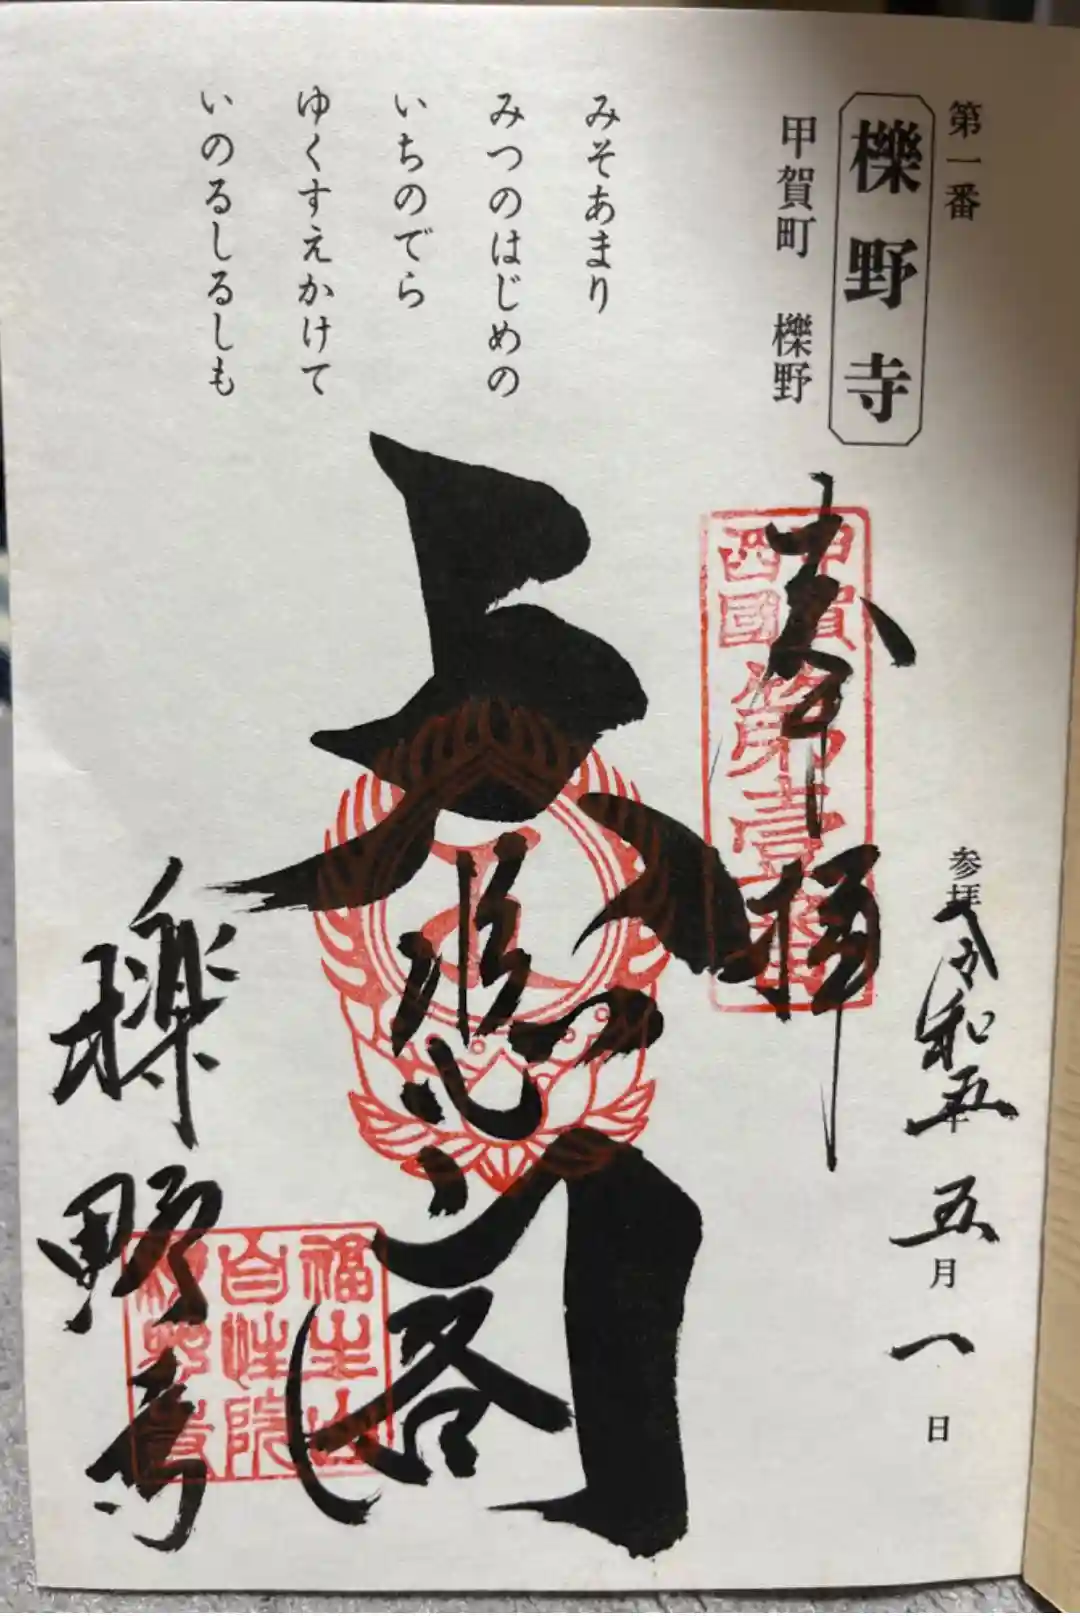 第一番
櫟野寺
甲賀町 櫟野
みそあまり
みつのはじめの
いちのでら
ゆくすえかけて
いのるしるしも
奉拝
甲賀
西國
第壹番
参拝 令和五年 五月 一日
大悲閣
櫟野寺
福生山
自性院
櫟野寺